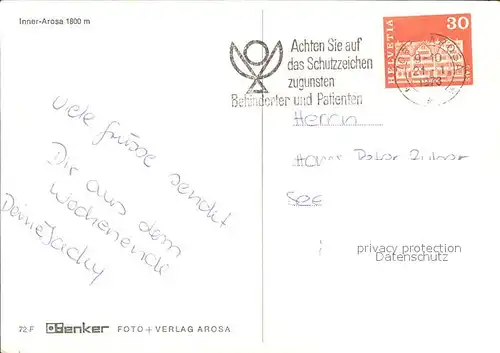 Inner-Arosa 1800 m
Achten Sie auf
das Schutzzeichen
zugunsten
Behinderter und Patienten
HELVETIA
30
AROSA
1973
Viele Grüsse sendet
Dir aus dem
Wochenende
Deine Jacky
Herrn
privacy protection
Datenschutz
72 F Benker FOTO + VERLAG AROSA